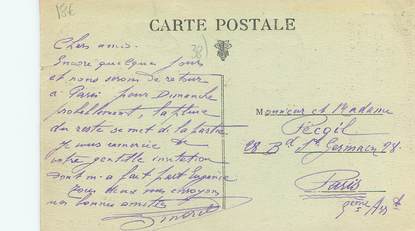 18€
CARTE POSTALE
38
Chers amis.
Encore quelques jours
et nous serons de retour
à Paris pour Dimanche
probablement, la pluie
du reste se met de la partie
Je vous remercie de
votre gentille invitation
dont m'a fait part
Tous deux vous envoyons
nos bonnes amitiés
Monsieur et Madame
28 Bd St Germain 28
Paris
5ème Arrt